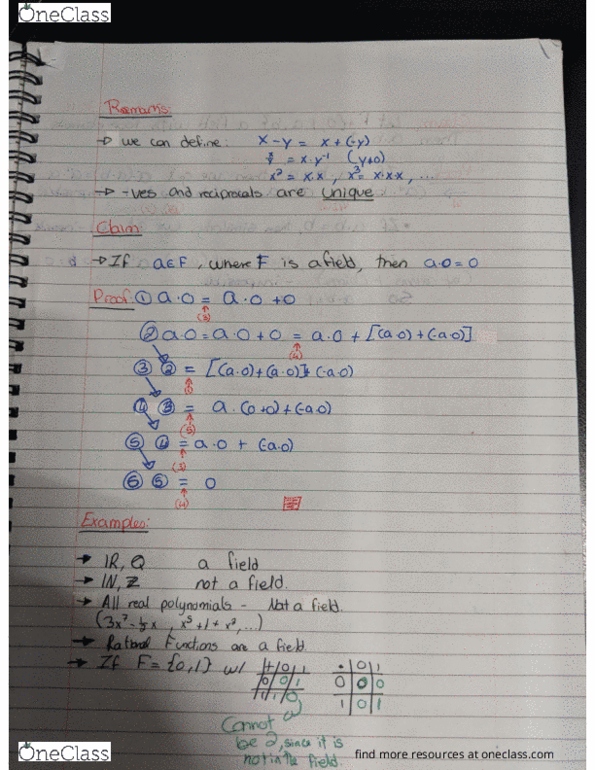 OneClass
Remarks:
→ we can define: x - y = x + (-y)
x/y = x·y⁻¹ (y≠0)
x² = x·x, x³ = x·x·x, ...
→ -ves and reciprocals are unique
Claim:
→ If a∈F, where F is a field, then a·0 = 0
Proof: ① a·0 = a·0 + 0
(3)
② a·0 = a·0 + 0 = a·0 + [(a·0) + (-a·0)]
(4)
③ ② = [(a·0) + (a·0)] + (-a·0)
④ ③ = a·(0+0) + (-a·0)
(5)
⑤ ④ = a·0 + (-a·0)
(3)
⑥ ⑤ = 0
(4)
Examples:
→ IR, Q a field
→ IN, Z not a field.
→ All real polynomials - Not a field.
→ Rational Functions are a field.
→ If F = {0,1} w/ + 0 1 • 0 1
0 0 1 0 0 0
1 1 0 1 0 1
Cannot
be 2, since it is
not in the field.
OneClass
find more resources at oneclass.com